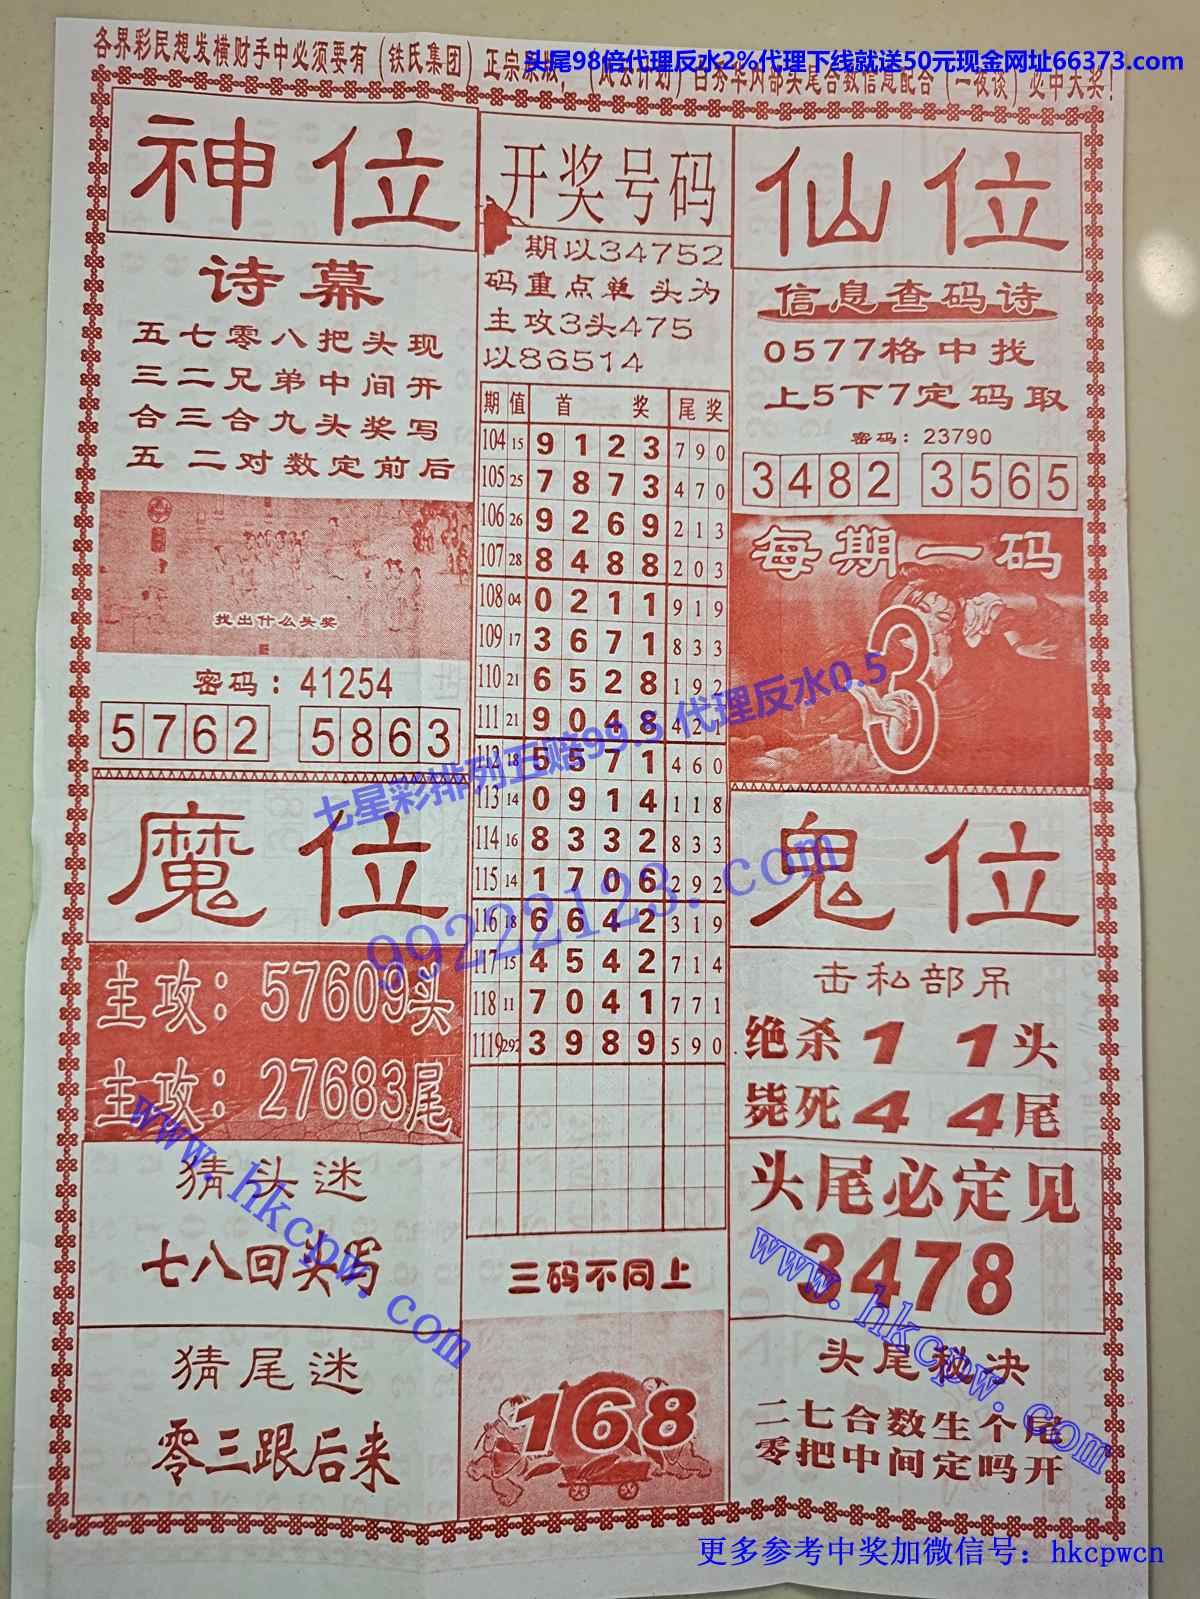 头尾98倍代理反水2%代理下线就送50元现金网址66373.com
各界彩民想发横财手中必须要有(铁氏集团)正宗
神位
诗幕
五七零八把头现
三二兄弟中间开
合三合九头奖写
五 二对数定前后
找出什么头奖
密码：41254
5762 5863
魔位
主攻：57609头
主攻：27683尾
猜头迷
七八回头写
猜尾迷
零三跟后来
开奖号码
期以34752
码重点单 头为
主攻3头475
以86514
期 值 首 奖 尾奖
104 15 9 1 2 3 7 9 0
105 25 7 8 7 3 4 7 0
106 26 9 2 6 9 2 1 3
107 28 8 4 8 8 2 0 3
108 04 0 2 1 1 9 1 9
109 17 3 6 7 1 8 3 3
110 21 6 5 2 8 1 9 2
111 21 9 0 4 8 4 2 1
112 18 5 5 7 1 4 6 0
113 14 0 9 1 4 1 1 8
114 16 8 3 3 2 8 3 3
115 14 1 7 0 6 2 9 2
116 18 6 6 4 2 3 1 9
117 15 4 5 4 2 7 1 4
118 11 7 0 4 1 7 7 1
1119 292 3 9 8 9 5 9 0
三码不同上
168
仙位
信息查码诗
0577格中找
上5下7定码取
密码：23790
3482 3565
每期一码
3
鬼位
击私部吊
绝杀1 1头
毙死4 4尾
头尾必定见
3478
头尾秘决
二七合数生个尾
零把中间定吗开
七星彩排列五赔99.5 代理反水0.5
99222123.com
www.hkcpw.com
www.hkcpw.com
更多参考中奖加微信号：hkcpwcn